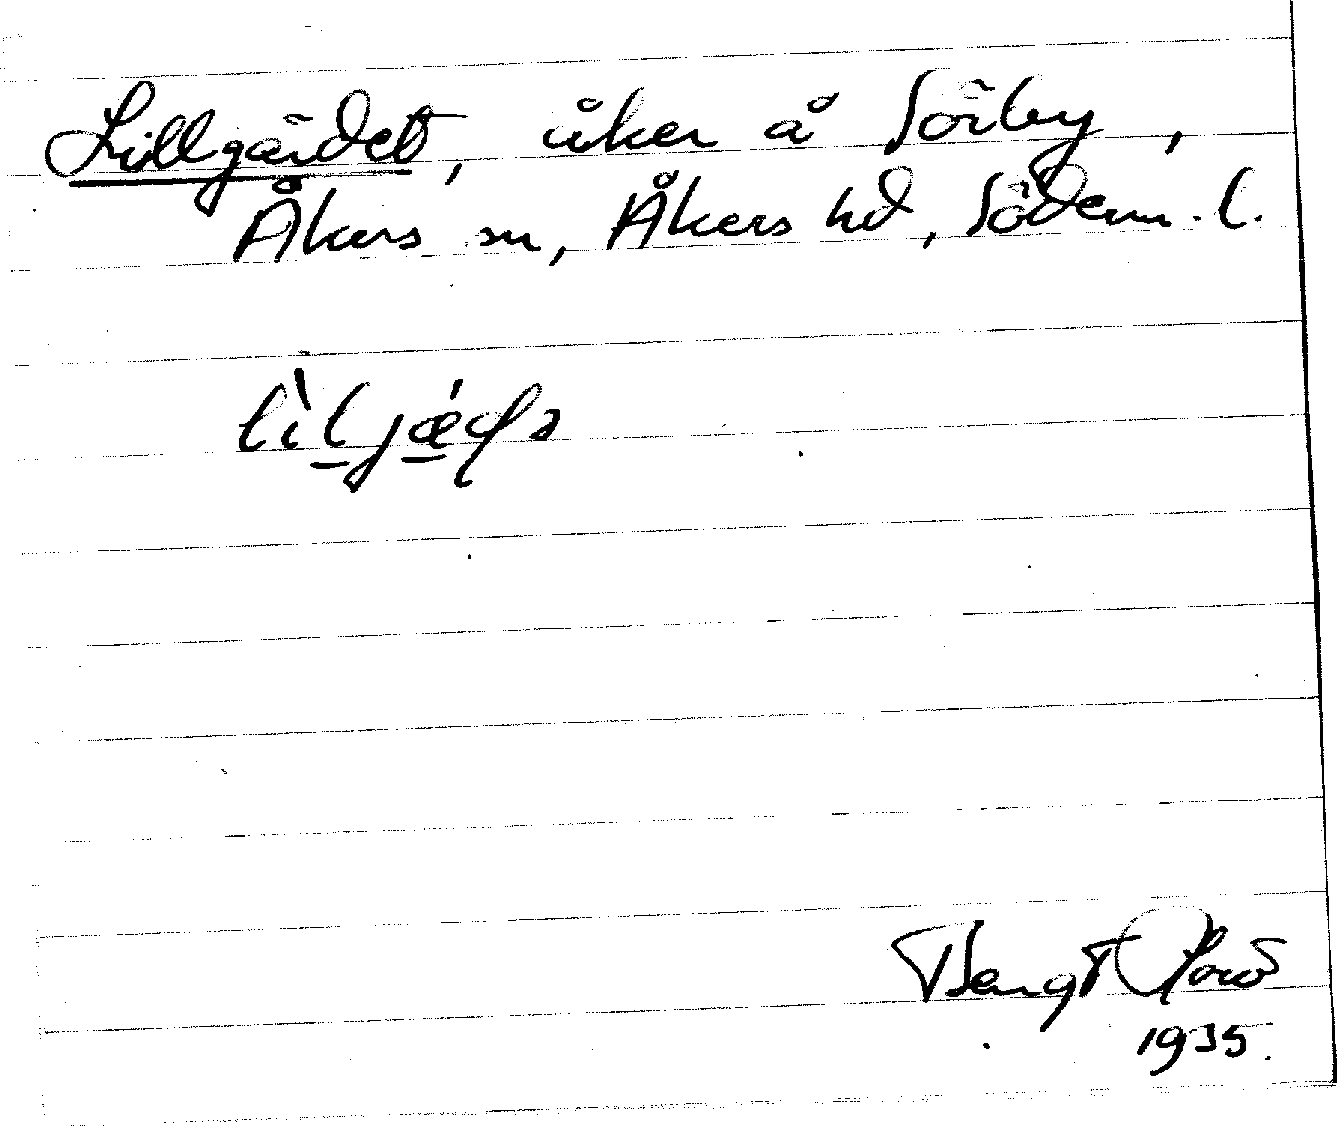 Lillgärdet, åker å Sörby,
Åkers sn, Åkers hd, Söderm. l.
Bengt
1935.